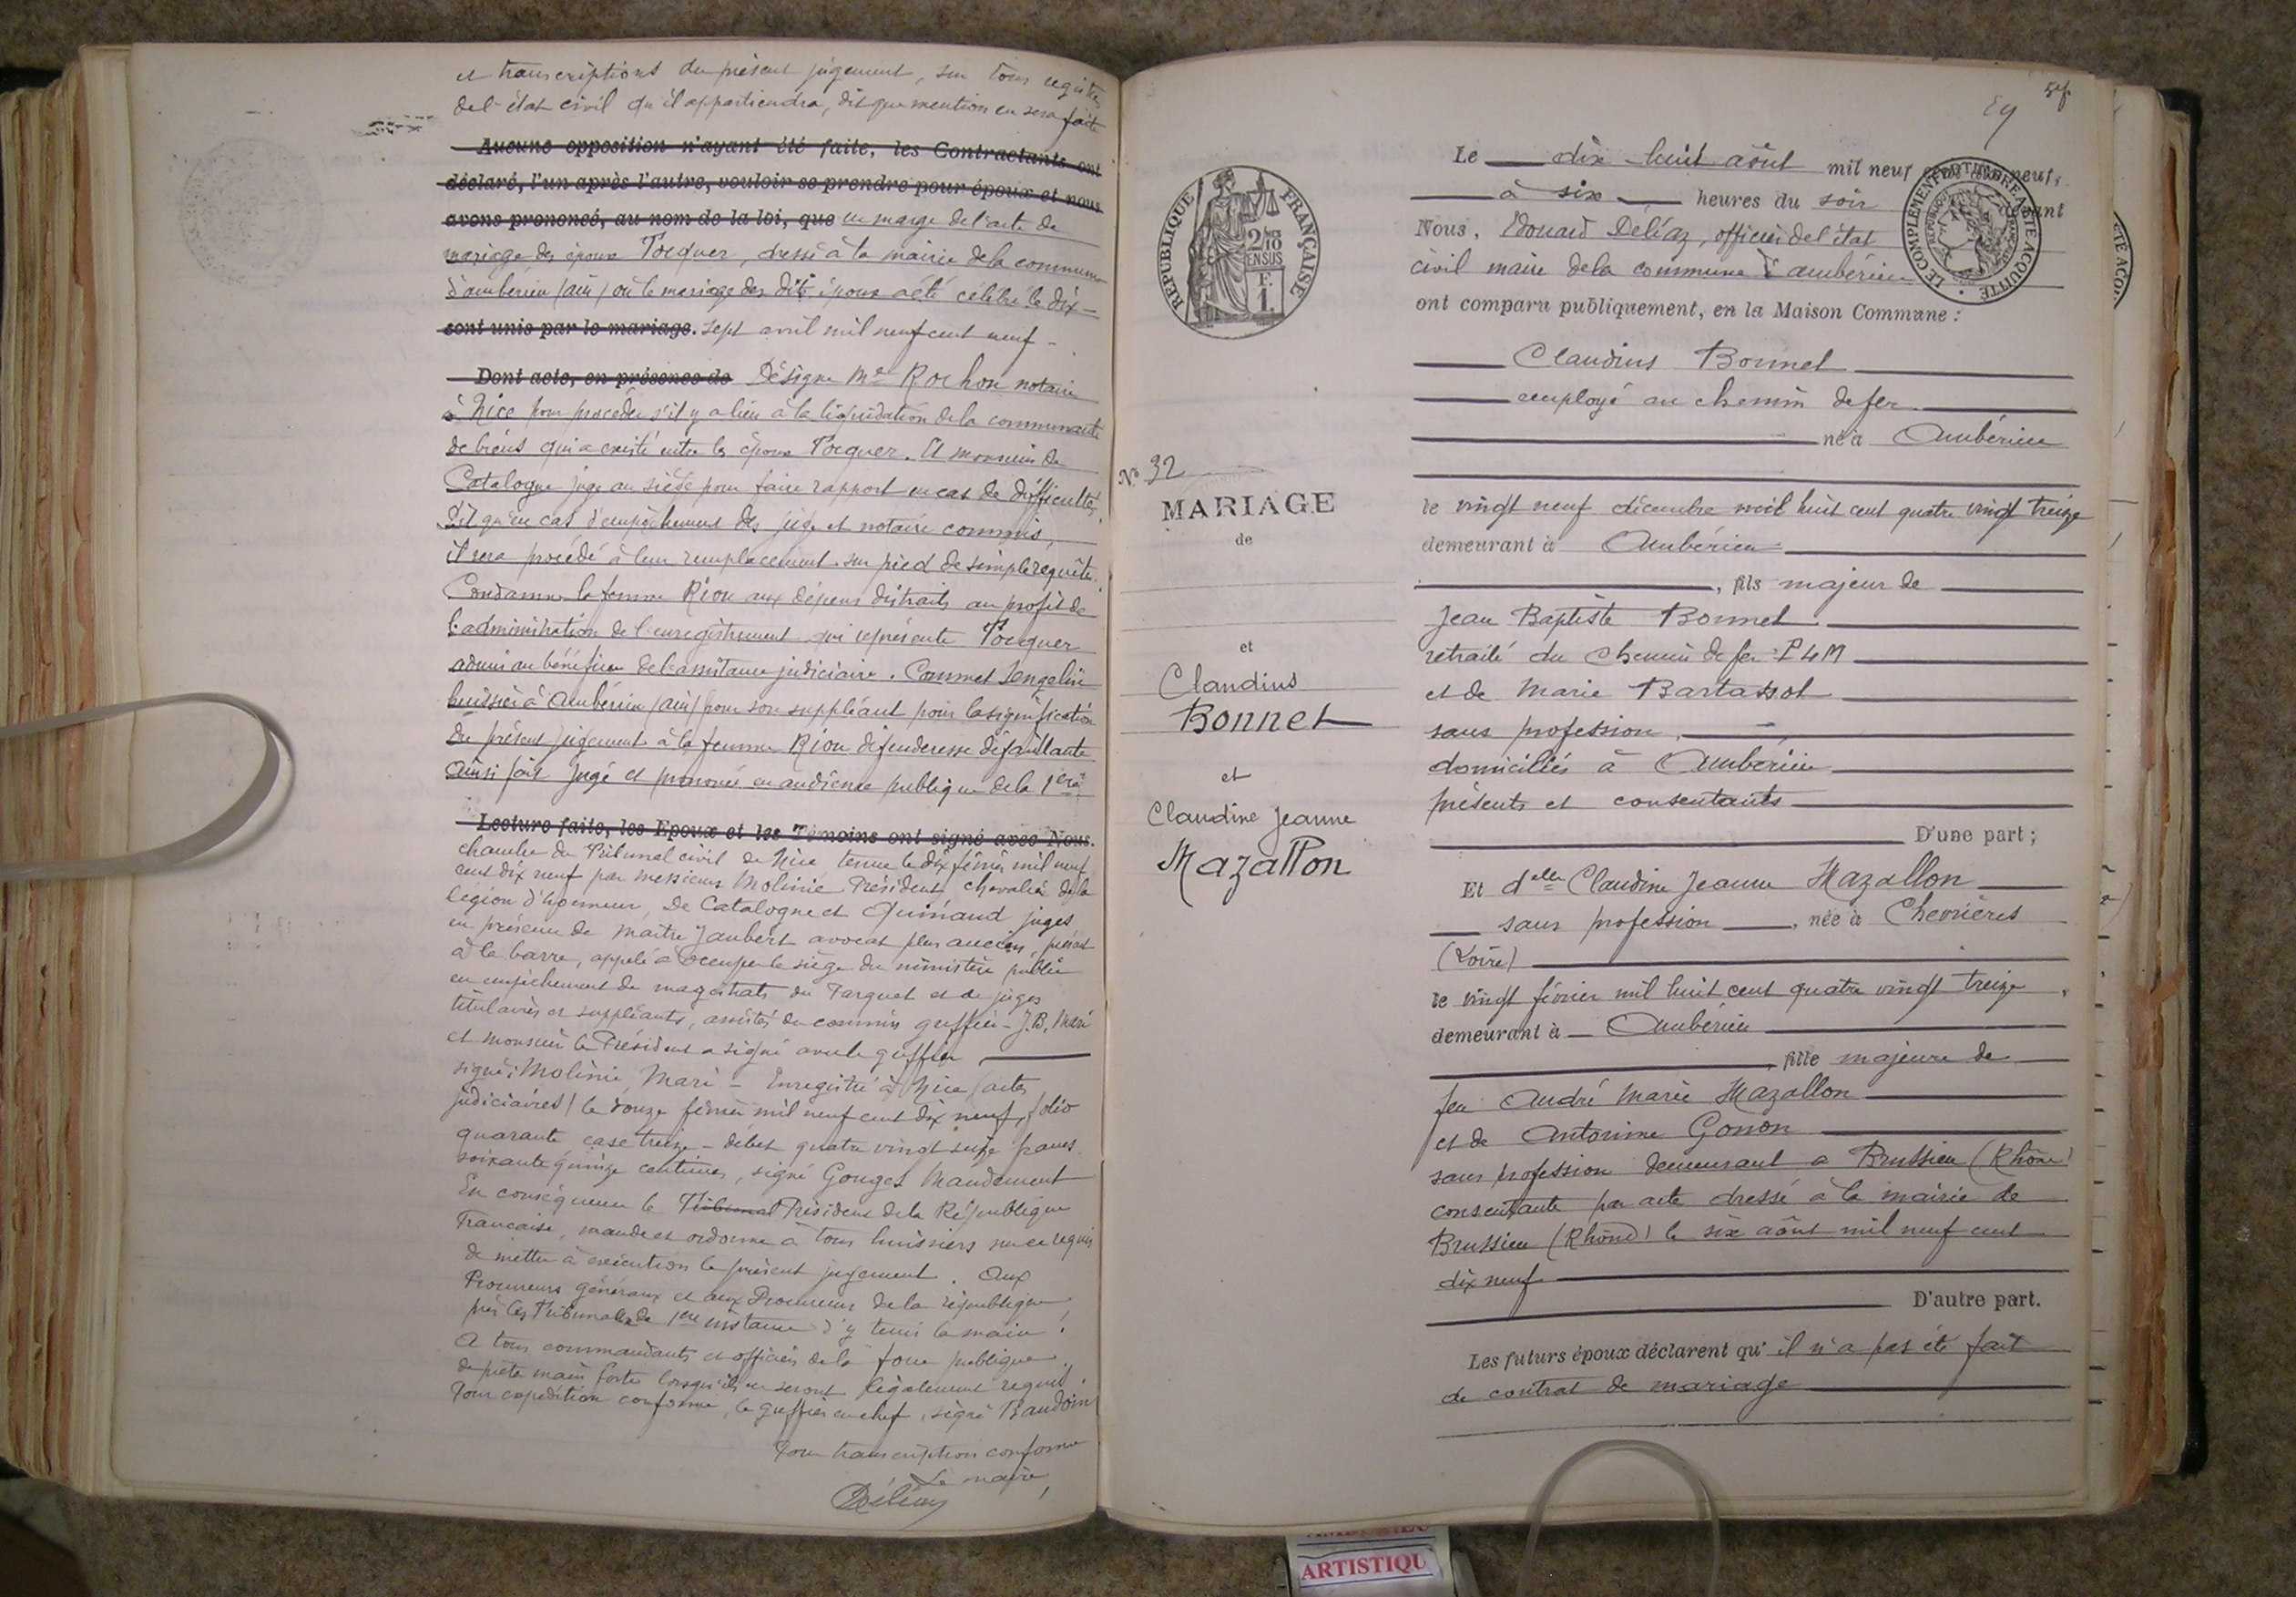 et transcriptions du présent jugement, sur tous registres
de l'état civil qu'il appartiendra, dit que mention en sera faite
Aucune opposition n'ayant été faite, les Contractants ont
déclaré, l'un après l'autre, vouloir se prendre pour époux et nous
avons prononcé, au nom de la loi, que en marge de l'acte de
mariage des époux Tocquer, dressé à la mairie de la commune
d'ambérieu (ain) où le mariage des dits époux a été célébré le dix-
sont unis par le mariage. sept avril mil neuf cent neuf -
Dont acte, en présence de Désigne Me Rochon notaire
à Nice pour procéder s'il y a lieu à la liquidation de la communauté
de biens qui a existé entre les époux Tocquer. Et monsieur de
Catalogne juge au siège pour faire rapport en cas de difficultés,
Dit qu'en cas d'empêchement des juge et notaire commis,
il sera procédé à leur remplacement sur pied de simple requête.
Condamne la femme Riou aux dépens distraits au profit de
l'administration de l'enregistrement qui représente Tocquer
admis au bénéfice de l'assistance judiciaire. Commet Sengelin
huissier à Ambérieu (ain) pour son suppléant pour la signification
du présent jugement à la femme Riou défenderesse défaillante
Ainsi fait jugé et prononcé en audience publique de la 1ère
Lecture faite, les Epoux et les Témoins ont signé avec Nous.
chambre du Tribunal civil de Nice tenue le dix février mil neuf
cent dix neuf par messieurs Molinié Président, chevalier de la
légion d'honneur, De Catalogne et Quinaud juges
en présence de maître Jaubert avocat plus ancien présent
à la barre, appelé à occuper le siège du ministère public
en empêchement de magistrats du Parquet et de juges
titulaires et suppléants, assistés du commis greffier - J.B. Mari
et monsieur le Président a signé avec le greffier
signé: Molinié, Mari - Enregistré à Nice (actes
judiciaires) le douze février mil neuf cent dix neuf, folio
quarante case treize - débet quatre vingt seize francs
soixante quinze centimes, signé Gouget Mandement
En conséquence le Tribunal Président de la République
Française, mande et ordonne à tous huissiers sur ce requis
de mettre à exécution le présent jugement. Aux
Procureurs généraux et aux Procureurs de la république
près les Tribunaux de 1ère instance d'y tenir la main.
A tous commandants et officiers de la force publique
de prêter main forte lorsqu'ils en seront légalement requis.
Pour expédition conforme, le greffier en chef, signé Baudoin
Pour transcription conforme
Le maire,
Déléaz
RÉPUBLIQUE FRANÇAISE
2/10 EN SUS
F. 1.
N° 32
MARIAGE
de
et
Claudius
Bonnet
et
Claudine Jeanne
Mazallon
59
Le dix huit août mil neuf cent dix neuf,
à six heures du soir devant
LE COMPLEMENT DU TIMBRE A ETE ACQUITTE
Nous, Edouard Deléaz, officier de l'état
civil maire de la commune d'ambérieu
ont comparu publiquement, en la Maison Commune :
Claudius Bonnet
employé au chemin de fer
né à Ambérieu
le vingt neuf décembre mil huit cent quatre vingt treize
demeurant à Ambérieu
, fils majeur de
Jean Baptiste Bonnet
retraité du Chemin de fer PLM
et de Marie Bartassot
sans profession,
domiciliés à Ambérieu
présents et consentants
D'une part;
Et delle Claudine Jeanne Mazallon
sans profession, née à Chevrières
(Loire)
le vingt février mil huit cent quatre vingt treize
demeurant à Ambérieu
, fille majeure de
feu André Marie Mazallon
et de Antonine Gonon
sans profession demeurant a Brussieu (Rhône)
consentante par acte dressé à la mairie de
Brussieu (Rhône) le six août mil neuf cent
dix neuf
D'autre part.
Les futurs époux déclarent qu'il n'a pas été fait
de contrat de mariage
ARTISTIQU